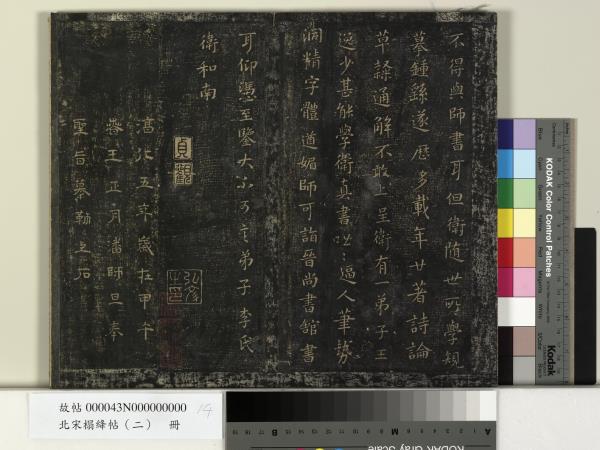 不得與師書耳但衛隨世所學規
摹鍾繇遂歷多載年廿著詩論
草隸通解不敢上呈衛有一弟子王
逸少甚能學衛真書咄〻逼人筆勢
洞精字體遒媚師可詣晉尚書館書
耳仰憑至鑒大不可言弟子李氏
衛和南
貞觀
淳化五年歲在甲午
春王正月潘師旦奉
聖旨摹勒上石
故帖 000043N000000000 14
北宋榻絳帖（二） 冊
KODAK Color Control Patches
Blue
Cyan
Green
Yellow
Red
Magenta
White
3/Color
Black
Kodak
KODAK Gray Scale
A